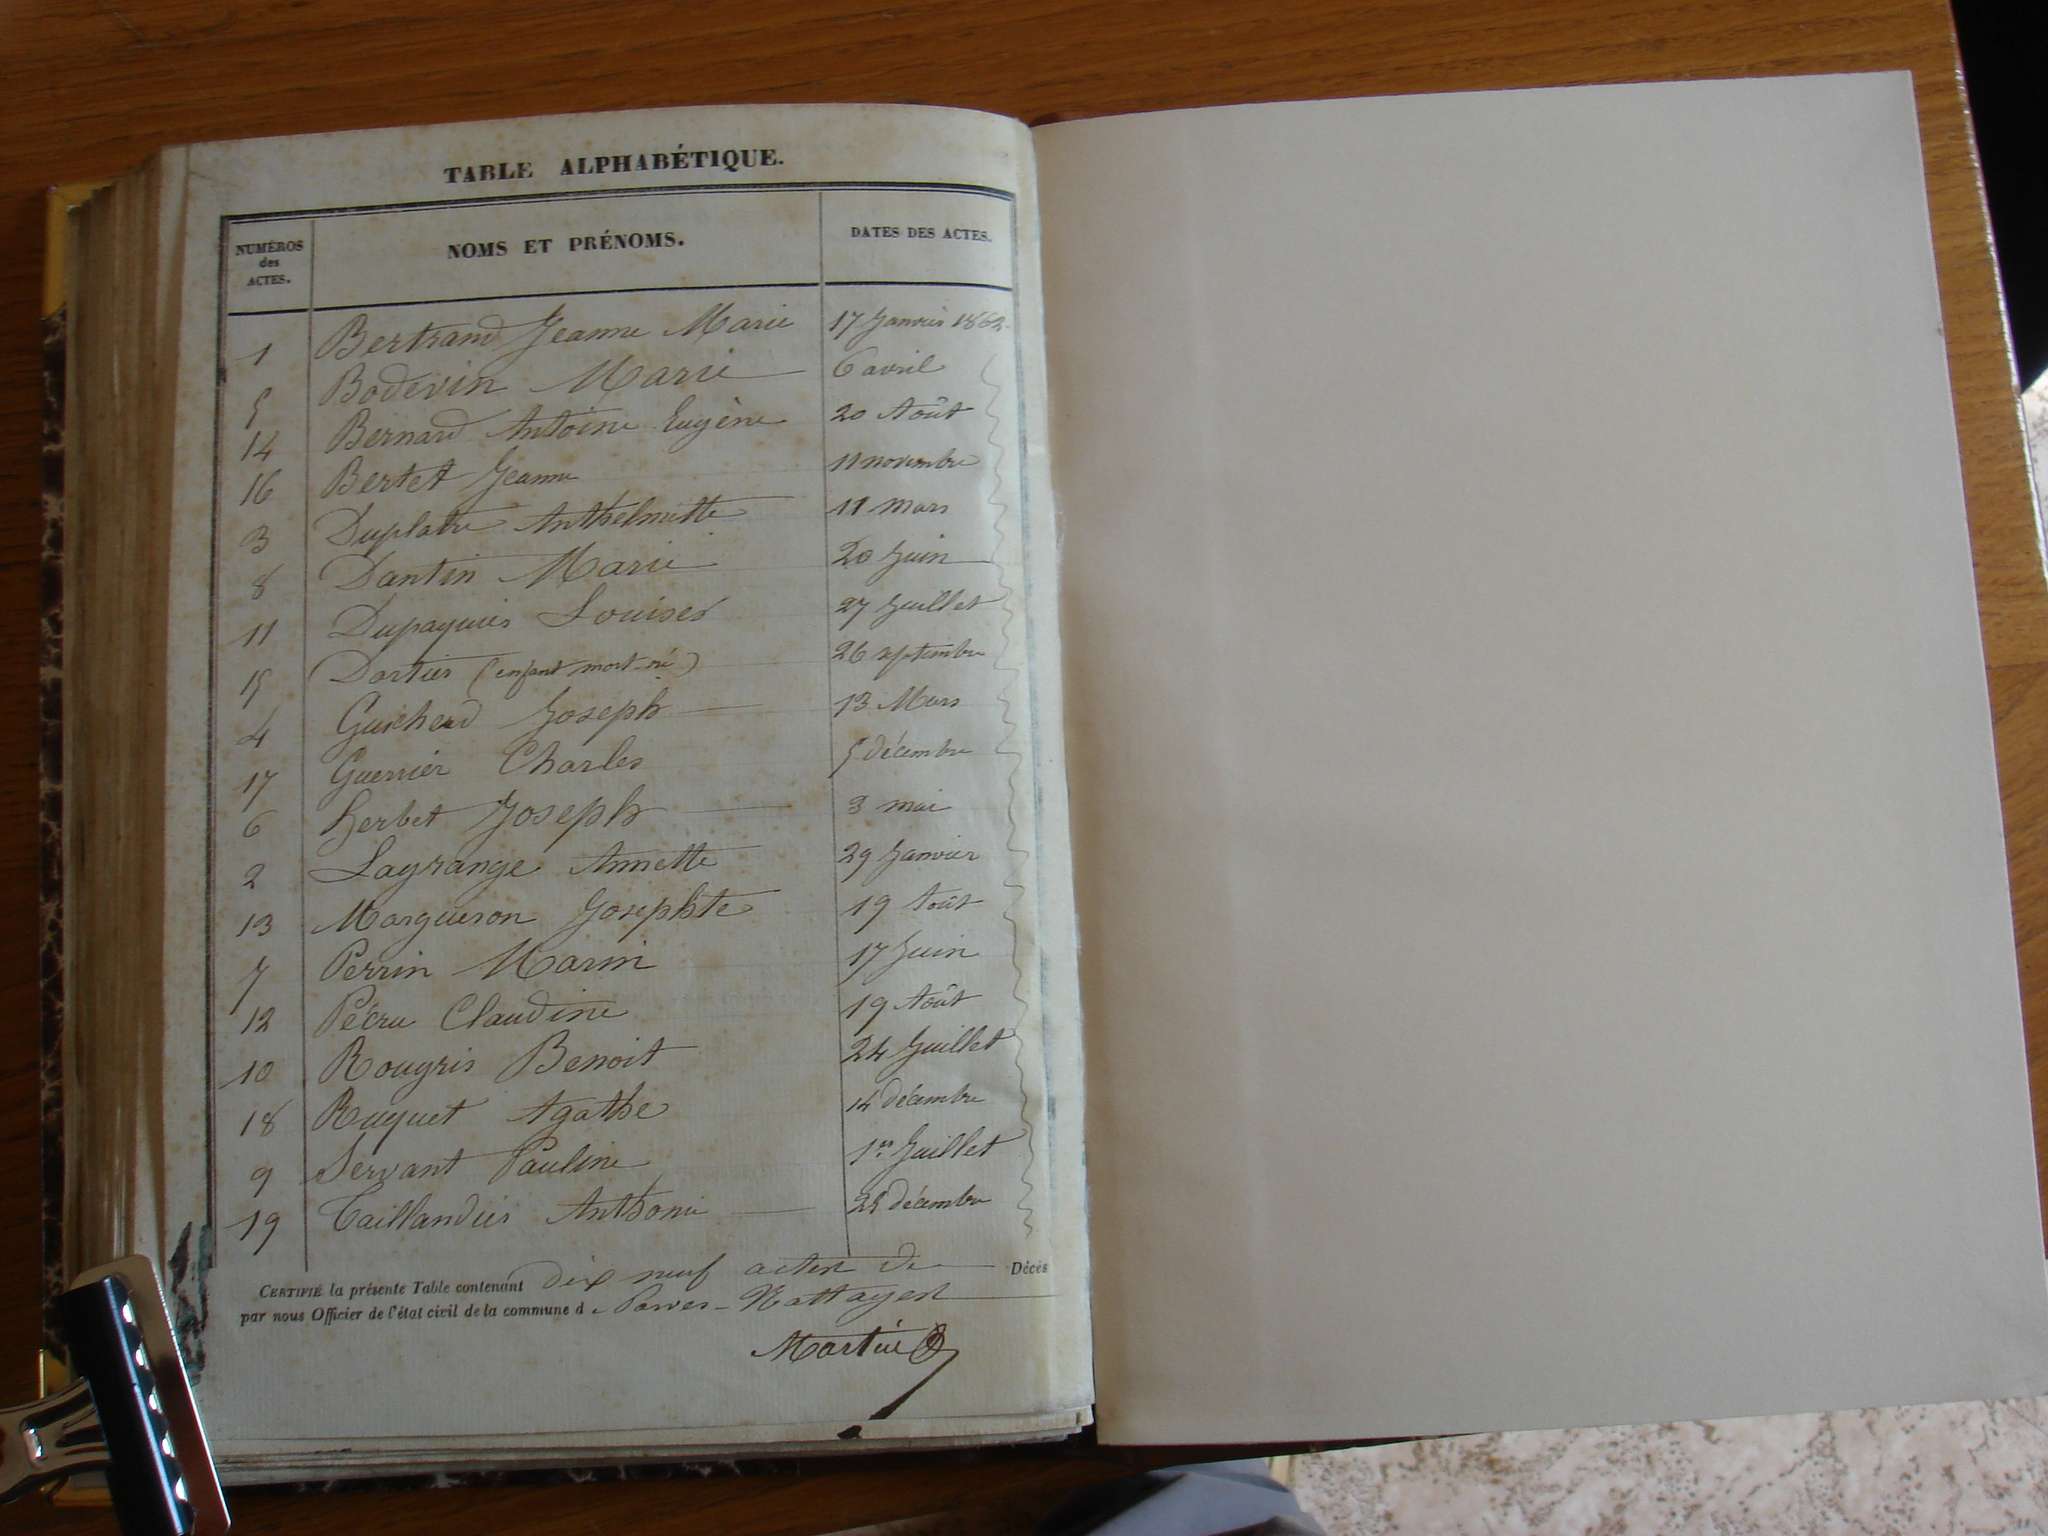 TABLE ALPHABÉTIQUE.
NUMÉROS des ACTES. NOMS ET PRÉNOMS. DATES DES ACTES.
1 Bertrand Jeanne Marie 17 Janvier 1862
5 Bodevin Marie 6 avril
14 Bernard Antoine Eugène 20 Août
16 Bertet Jeanne 11 novembre
3 Duplatre Anthelmette 11 Mars
8 Dantin Marie 20 Juin
11 Dupaquis Louise 27 Juillet
15 Dortier (enfant mort-né) 26 septembre
4 Guicherd Joseph 13 Mars
17 Guerrier Charles 5 décembre
6 Herbet Joseph 3 mai
2 Lagrange Annette 29 Janvier
13 Margueron Josephte 19 Août
7 Perrin Marin 17 Juin
12 Pécru Claudine 19 Août
10 Rougris Benoit 24 Juillet
18 Ruquet Agathe 14 décembre
9 Servant Pauline 1er Juillet
19 Taillandier Anthonie 25 décembre
CERTIFIÉ la présente Table contenant dix neuf actes de Décès
par nous Officier de l'état civil de la commune d Parves-Nattages